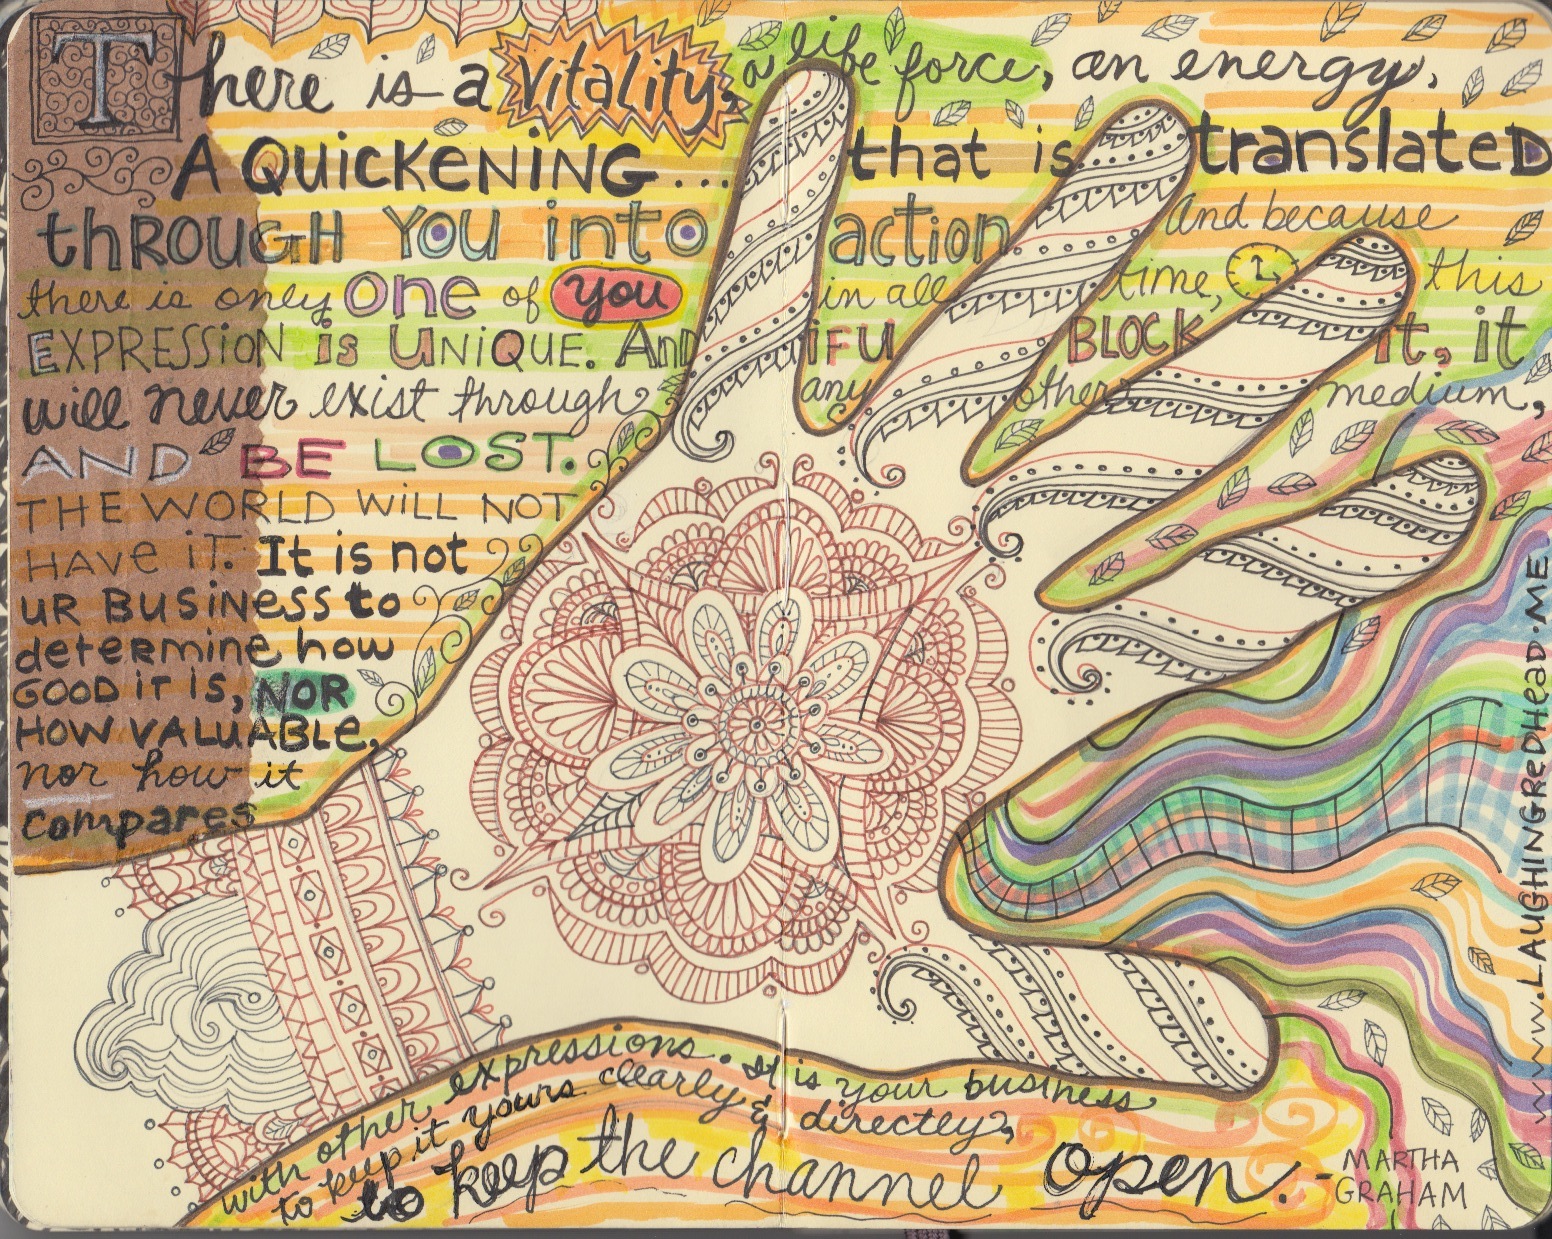 There is a vitality, a life force, an energy,
A QUICKENING... that is translateD
thROUGH YOU into action and because
there is only one of you in all time, this
EXPRESSION is UNiQUE. And iF U BLOCK it, it
will never exist through any other medium,
AND BE LOST.
THE WORLD WILL NOT
HAVE iT. It is not
UR BUSiNess to
determine how
GOOD iT is, NOR
HOW VALUABLe,
nor how it
compares
with other expressions. It is your business
to keep it yours clearly & directly,
to keep the channel open.
- MARTHA
GRAHAM
www.LAUGHINGREDHead.ME